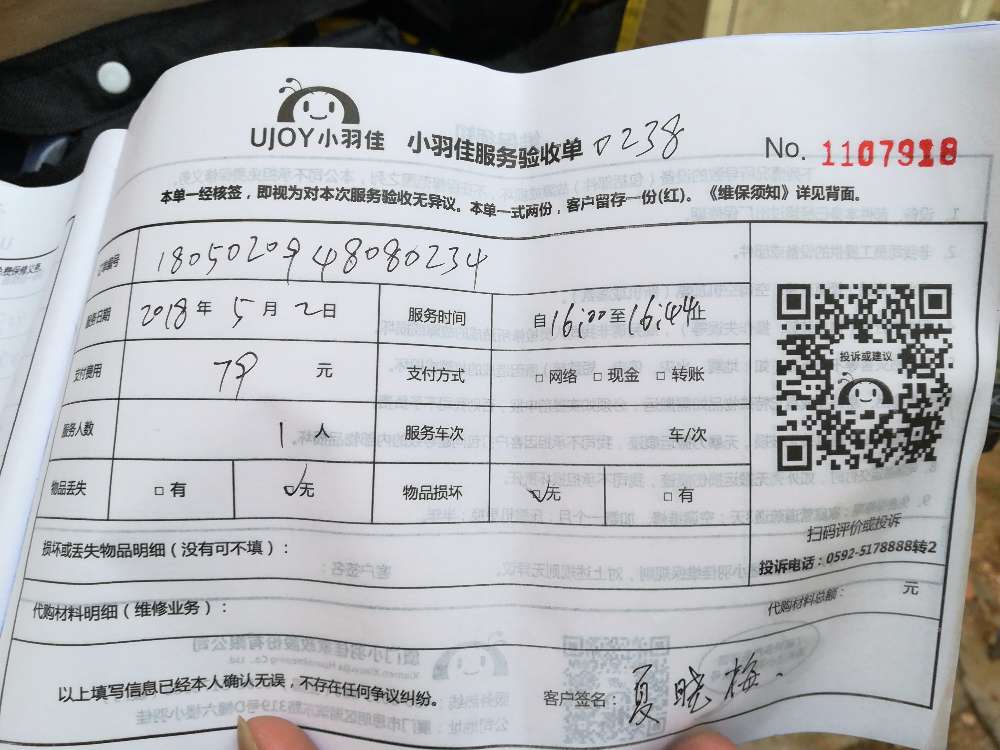 UJOY小羽佳 小羽佳服务验收单 0238 No. 1107928
本单一经核签，即视为对本次服务验收无异议。本单一式两份，客户留存一份(红)。《维保须知》详见背面。
订单编号 1805020948080234
服务日期 2018年5月2日 服务时间 自16:00至16:44止
支付费用 79 元 支付方式 □ 网络 □ 现金 □ 转账
服务人数 1人 服务车次 车/次
物品丢失 □ 有 ☑无 物品损坏 ☑无 □ 有
投诉或建议
扫码评价或投诉
投诉电话：0592-5178888转2
损坏或丢失物品明细（没有可不填）：
代购材料明细（维修业务）： 代购材料总额： 元
以上填写信息已经本人确认无误，不存在任何争议纠纷。 客户签名：夏晓梅